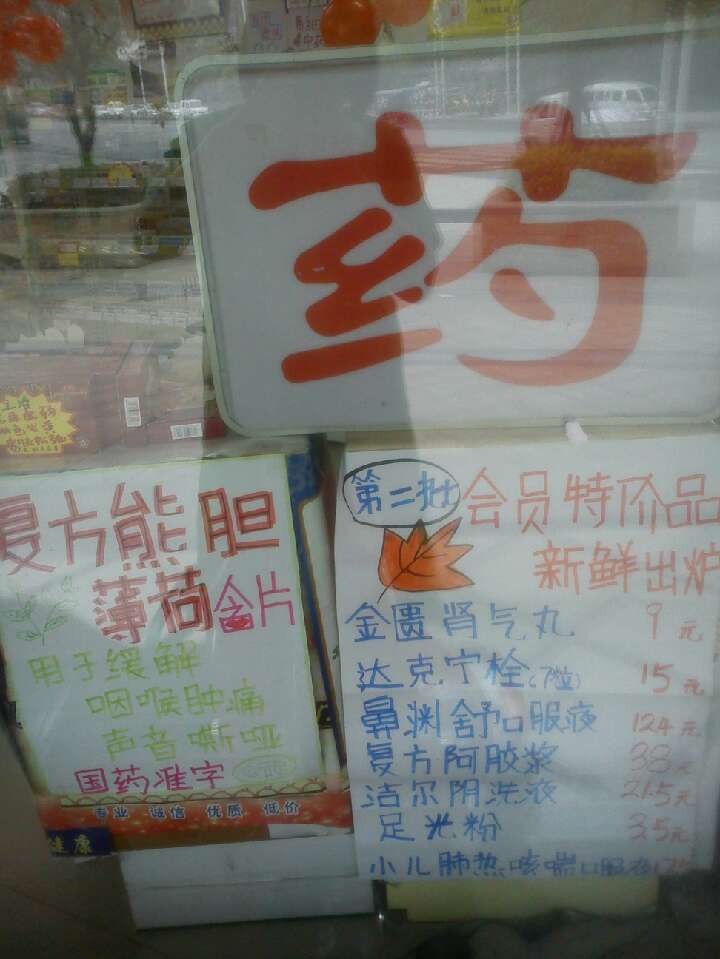 药
复方熊胆
薄荷含片
用于缓解
咽喉肿痛
声音嘶哑
国药准字
专业 诚信 优质 低价
健康
第二批 会员特价品
新鲜出炉
金匮肾气丸 9元
达克宁栓(7粒) 15元
鼻渊舒口服液 124元
复方阿胶浆 38元
洁尔阴洗液 21.5元
足光粉 3.5元
小儿肺热咳喘口服液